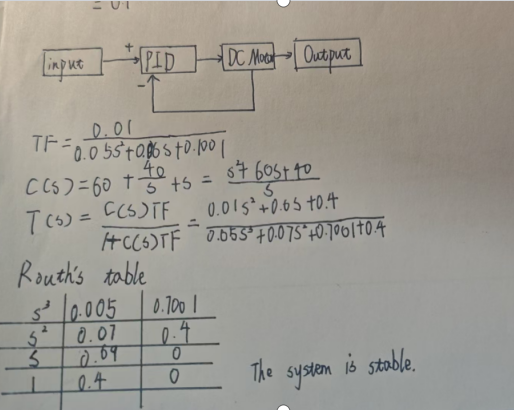 = 0.1
input + PID DC Motor Output
-
TF = 0.01 / 0.05s²+0.06s+0.1001
C(s) = 60 + 40/s + s = s²+60s+40 / s
T(s) = C(s)TF / 1+C(s)TF = 0.01s²+0.6s+0.4 / 0.05s³+0.07s²+0.7001+0.4
Routh's table
s³ 0.005 0.7001
s² 0.07 0.4
s 0.69 0
1 0.4 0
The system is stable.